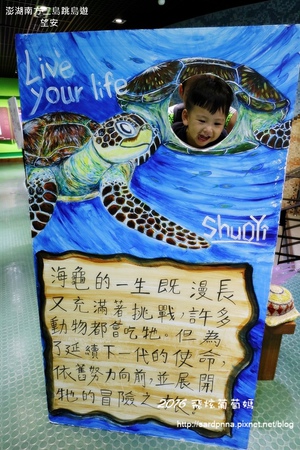 澎湖南方四島跳島遊
望安
Live
your life
ShuoYi
海龜的一生既漫長
又充滿著挑戰,許多
動物都會吃牠。但為
了延續下一代的使命,
依舊努力向前,並展開
牠的冒險之
2016 飛絃葡萄媽
http://sardonna.pixnet.net/blog